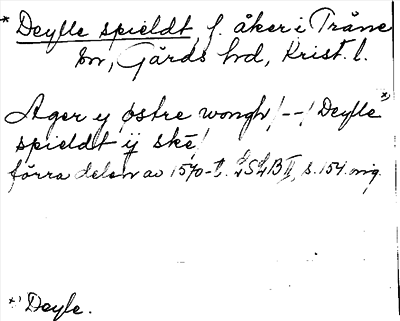 * Deylle spieldt, f. åker i Tråne
sn, Gärds hd, Krist. l.
Ager y østre wongh! -- ! Deylle *)
spieldt ij ske!
förra delen av 1570-t. LSLB II, s. 154. orig.
*) Deyle.